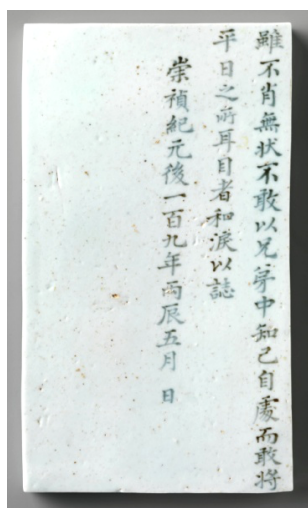 雖不肖無状不敢以兄弟中知己自處而敢將
平日之所耳目者和淚以誌
崇禎紀元後一百九年丙辰五月 日